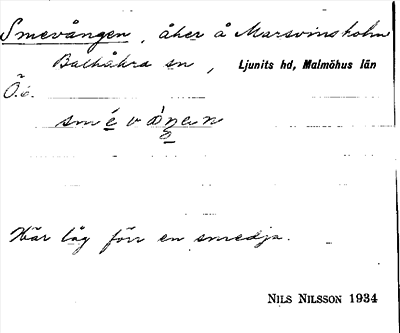 Smevången, åker å Marsvinsholm
Balkåkra sn, Ljunits hd, Malmöhus län
Ö.
Här låg förr en smedja.
NILS NILSSON 1934